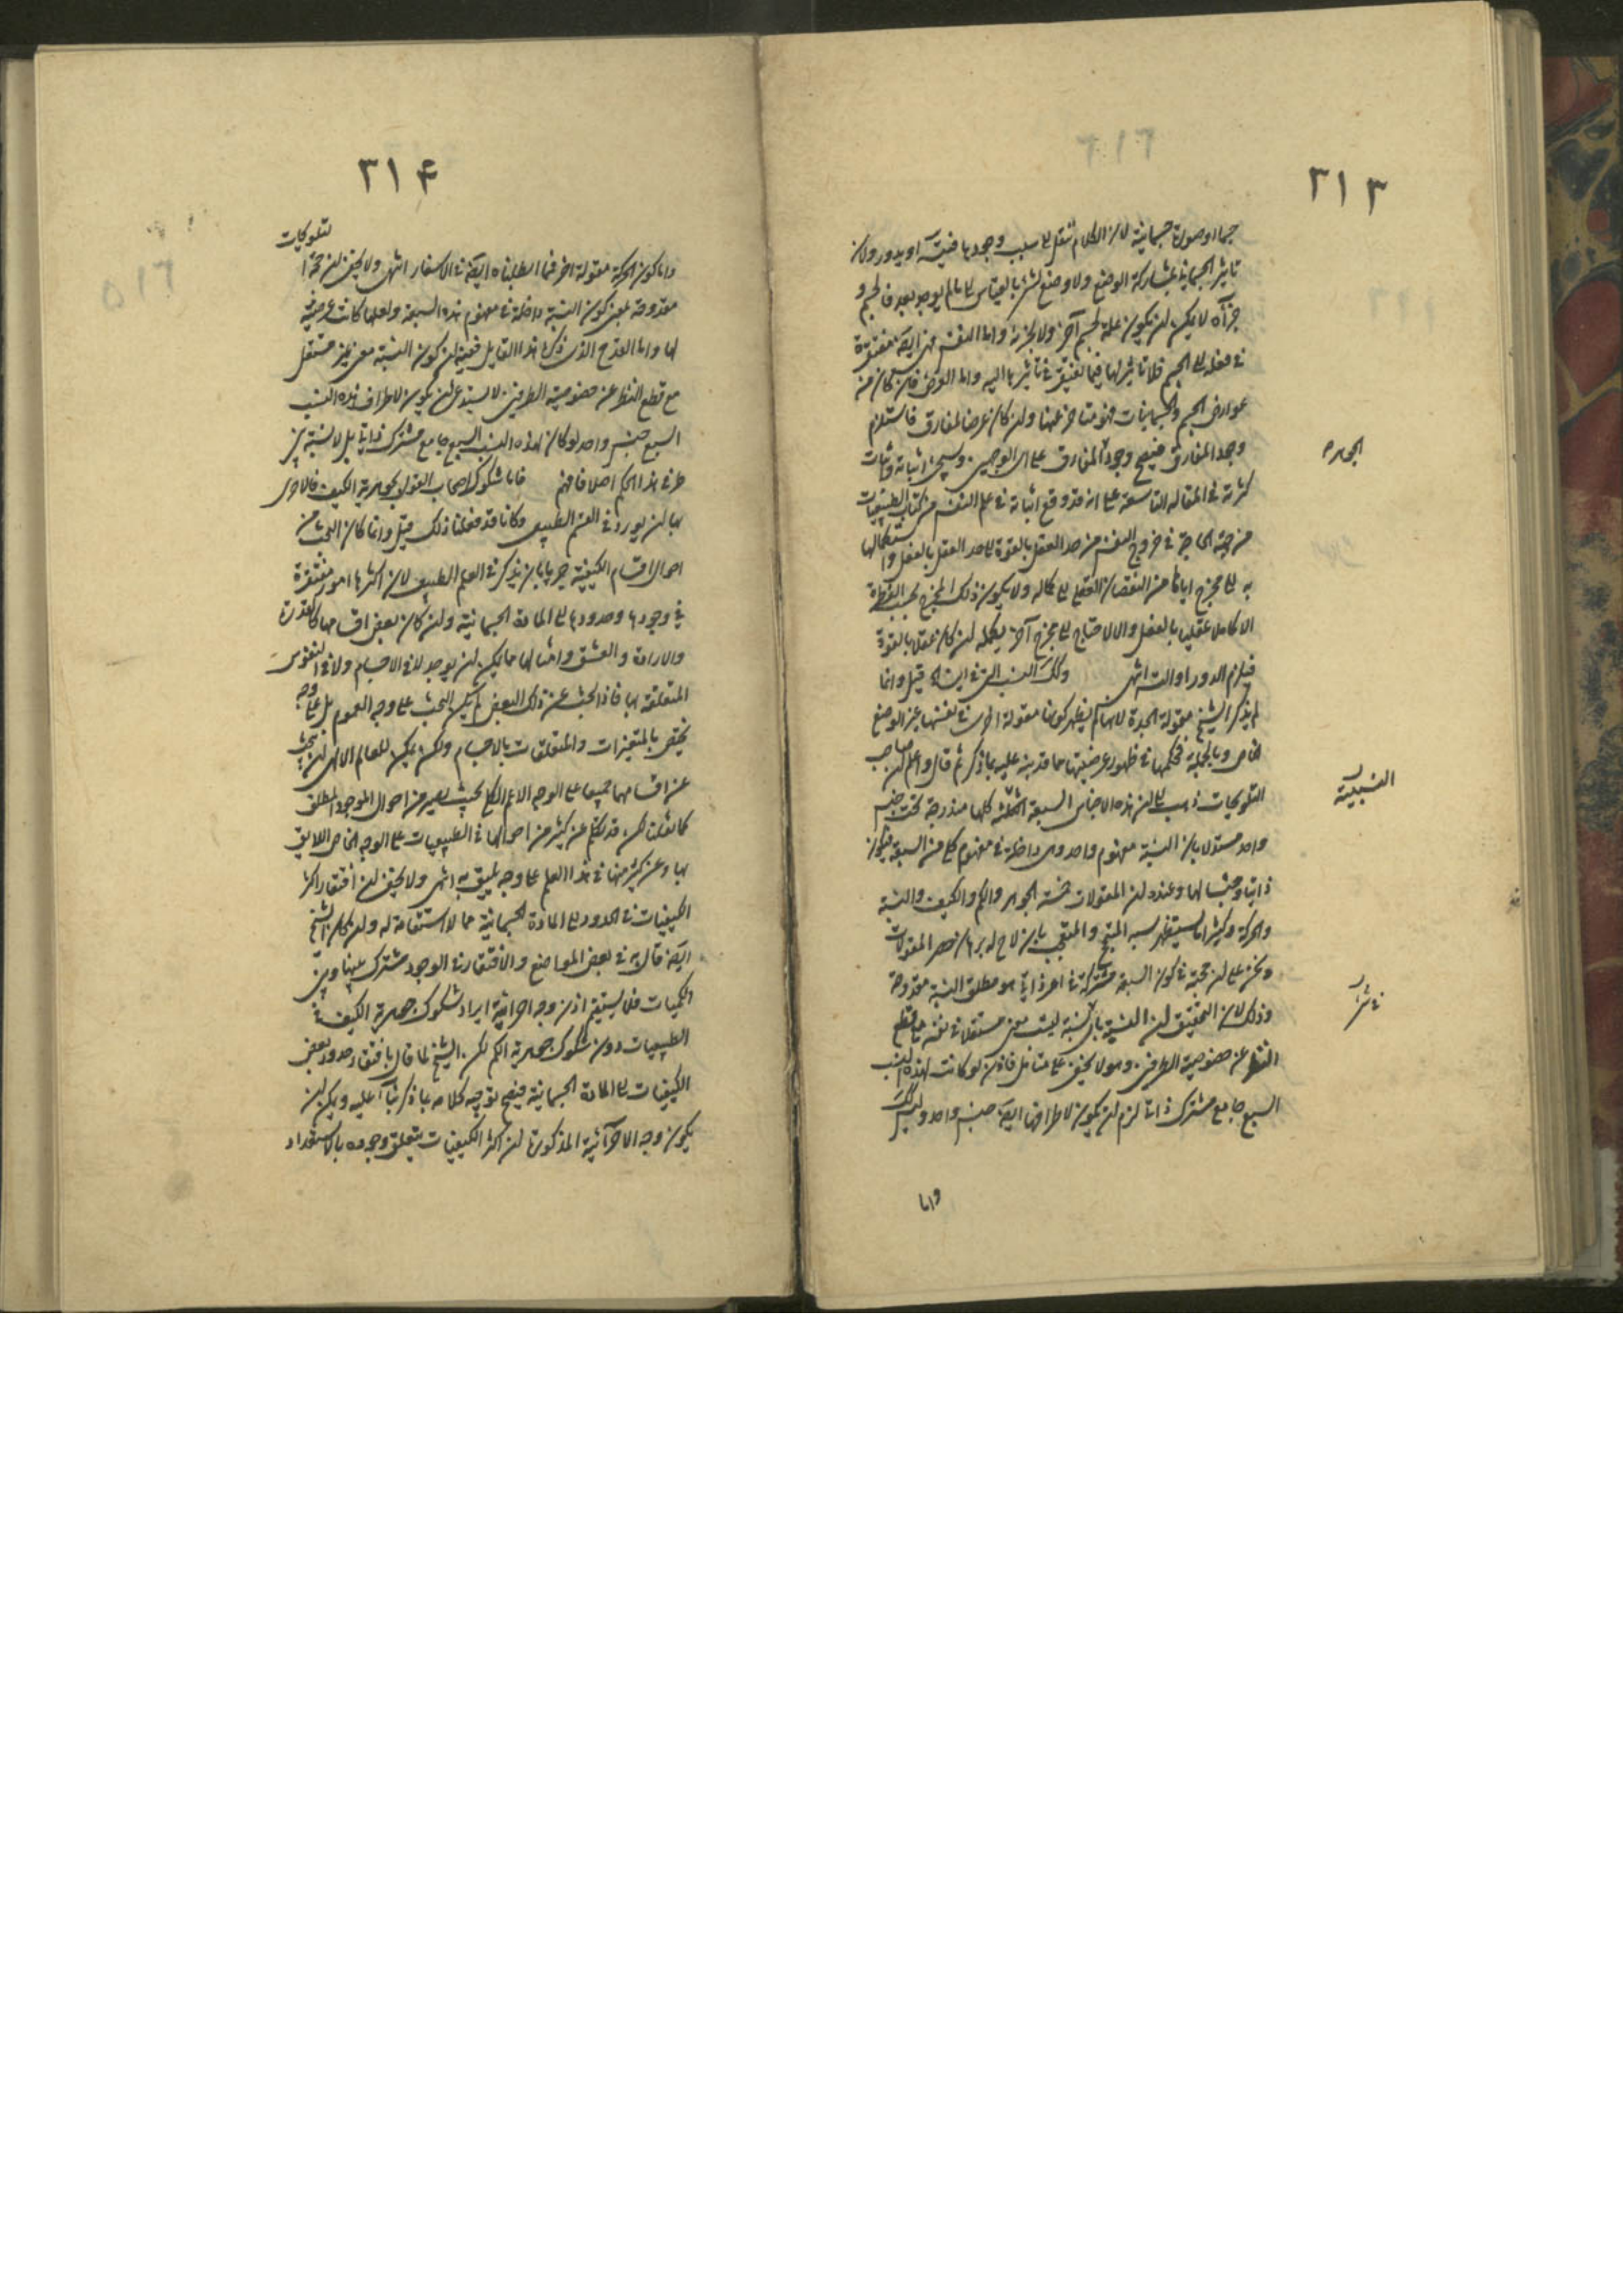 ٣١٣
جسما او صورة جسمانية لان الكلام ننقل الى سبب وجودها فيتسلسل او يدور ولان
تاثير الجسمانية بمشاركة الوضع ولا وضع لشئ بالقياس الى ما لم يوجد بعد فالجسم و
جزآه لا يمكن ان يكون علة لجسم آخر ولا لجزئه واما النفس فهي ايضا مفتقرة
في فعلها الى الجسم فلا تاثير لها فيما تفتقر في تاثيرها اليه واما العرض فان كان من
عوارض الجسم والجسمانيات فهو متاخر عنها وان كان عرضا لمفارق فاستلزم
وجود المفارق فيصح وجود المفارق على اي الوجهين وسيجئ اثباته واثبات
الجوهرية
كثرته في المقالة التاسعة على انه قد وقع اثباته في علم النفس من كتاب الطبيعيات
من جهة الحاجة في خروج النفس من حد العقل بالقوة الى حد العقل بالفعل واستكمالها
به الى مخرج اياها من النقصان العقلي الى كماله ولا يكون ذلك المخرج بحسب الفطرة
الا كاملا عقليا بالفعل والا لاحتاج الى مخرج آخر يكمله ان كان عقلا بالقوة
فيلزم الدور او التس انتهى وتلك النسب التي في اين الخ قيل وانما
لم يذكر الشيخ مقولة الجدة لانها لم يظهر كونها مقولة اخرى في نفسها غير الوضع
الخاص وبالجملة فحكمها في ظهور عرضيتها مما قد نبه عليه بما ذكر ثم قال واعلم ان صاحب
التلويحات ذهب الى ان هذه الاجناس السبعة كلها مندرجة تحت جنس
النسبية
واحد مستدلا بان النسبة مفهوم واحد وهى داخلة في مفهوم كل من السبعة فيكون
ذاتيا وجنسا لها وعنده ان المقولات خمسة الجوهر والكم والكيف والنسبة
والحركة وكثيرا ما يستظهر سبه المتبجح والمتعجب بان لاح له برهان حصر المقولات
ونحن على ان حجته في كون السبعة مشتركة في امر ذاتي هو مطلق النسبة مقدوحة
وذلك لان التحقيق ان النسبة بما هي نسبة ليست معنى مستقلا في نفسه مع قطع
في شرا
النظر عن خصوصية الطرفين وهو لا يخفى على متامل فاذن لو كانت لهذه النسب
السبع جامع مشترك ذاتي لزم ان يكون لاطرافها ايضا جنس واحد وليس كذلك
واما
٣١٤
لتلويحات
واما كون الحركة مقولة اخرى فمما ابطلناه ايضا في الاسفار انتهى ولا يخفى ان حجة ا
مقدوحة بمعنى كون النسبة داخلة في مفهوم هذه السبعة ولعلها كانت عرضية
لها واما القدح الذى ذكره هذا القايل ففيه ان كون النسبة معنى غير مستقل
مع قطع النظر عن خصوصية الطرفين لا يستدعي ان يكون لاطراف هذه النسب
السبع جنس واحد لو كان لهذه النسب السبع جامع مشترك ذاتي بل لا نسبة بين
طرفي هذا الحكم اصلا فافهم فاما شكوك اصحاب القول بجوهرية الكيف فالاحرى
بها ان يورد في العلم الطبيعي وكانا قد فعلنا ذلك قيل وانما كان البحث عن
احوال اقسام الكيفية حريا بان يذكر في العلم الطبيعي لان اكثرها امور مفتقرة
في وجودها وحدودها الى المادة الجسمانية وان كان بعض اقسامها كالقدرة
والارادة والعشق وامثالها مما يمكن ان يوجد لا في الاجسام ولا في النفوس
المتعلقة بها فاذا البحث عن ذلك البعض لم يكن البحث على وجه العموم بل على وجه
يختص بالمتغيرات والمتعلقات بالاجسام ولكن يمكن للعالم الالهى ان يبحث
عن اقسامها جميعا على الوجه الاعم الكلي بحيث يصير من احوال الموجود المطلق
كما فعلنا لكن قد نتكلم عن كثير من احوالها في الطبيعيات على الوجه الخاص اللايق
بها وعن كثير منها في هذا العلم على وجه يليق به انتهى ولا يخفى ان افتقار اكثر
الكيفيات في الحدود الى المادة الجسمانية مما لا استقامة له وان كان الشيخ
ايضا قال به في بعض المواضع والافتقار في الوجود مشترك بينها وبين
الكميات فلا يستقيم اذن وجه احرائية ايراد شكوك جوهرية الكيف في
الطبيعيات دون شكوك جوهرية الكم لكن الشيخ لما قال بافتقار حدود بعض
الكيفيات الى المادة الجسمانية فيصح توجيه كلامه بما ذكر بناء عليه ويمكن ان
يكون وجه الاحرائية المذكورة ان اكثر الكيفيات يتعلق وجوده بالاستعداد